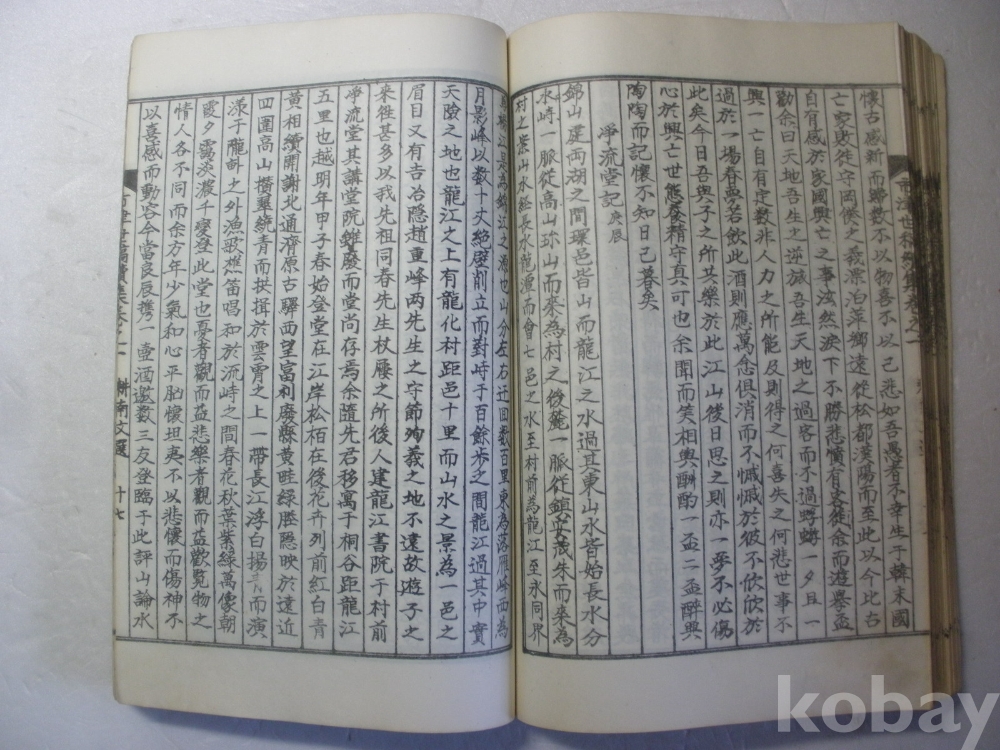 懷古感新而歸數不以物喜不以己悲如吾愚者不幸生于韓末國
自有感於家國興亡之事泫然淚下不勝悲憤有客從余而遊擧盃
勸余曰天地吾生之逆旅吾生天地之過客而不過蜉蝣一夕且一
興一亡自有定數非人力之所能及則得之何喜失之何悲世事不
過於一場春夢若飮此酒則應萬念俱消而不慽慽於彼不欣欣於
此矣今日吾與子之所共樂於此江山後日思之則亦一夢不必傷
心於興亡世態養精守眞可也余聞而笑相與酬酌一盃二盃醉興
陶陶而記懷不知日己暮矣
淨流堂記 庚辰
錦山處兩湖之間環邑皆山而龍江之水過其東山水皆始長水分
水峙一脈從高山珎山而來為村之後麓一脈從鎭安茂朱而來為
村之案山水經長水龍潭而會七邑之水至村前為龍江至永同界
月影峰以數十丈絕壁削立而對峙于百餘步之間龍江過其中實
天險之地也龍江之上有龍化村距邑十里而山水之景為一邑之
眉目又有吉冶隱趙重峰两先生之守節殉義之地不遠故遊子之
來徃甚多以我先祖同春先生杖屨之所後人建龍江書院于村前
淨流堂其講堂院雖廢而堂尚存焉余隨先君移寓于桐谷距龍江
五里也越明年甲子春始登堂在江岸松栢在後花卉列前紅白青
黄相續開謝北通濟原古驛西望富利廢縣黄畦綠塍隱映於遠近
四圍高山攢翠繞青而拱揖於雲霄之上一帶長江浮白揚 而演
漾于龍 之外漁歌樵笛唱和於流峙之間春花秋葉紫綠萬像朝
霞夕靄淡濃千變登此堂也憂者觀而益悲樂者觀而益歡覧物之
情人各不同而余方年少氣和心平胎懷坦夷不以悲懷而傷神不
以喜感而動容今當良辰携一壺酒邀數三友登臨于此評山論水
耕南文選
十七
kobay